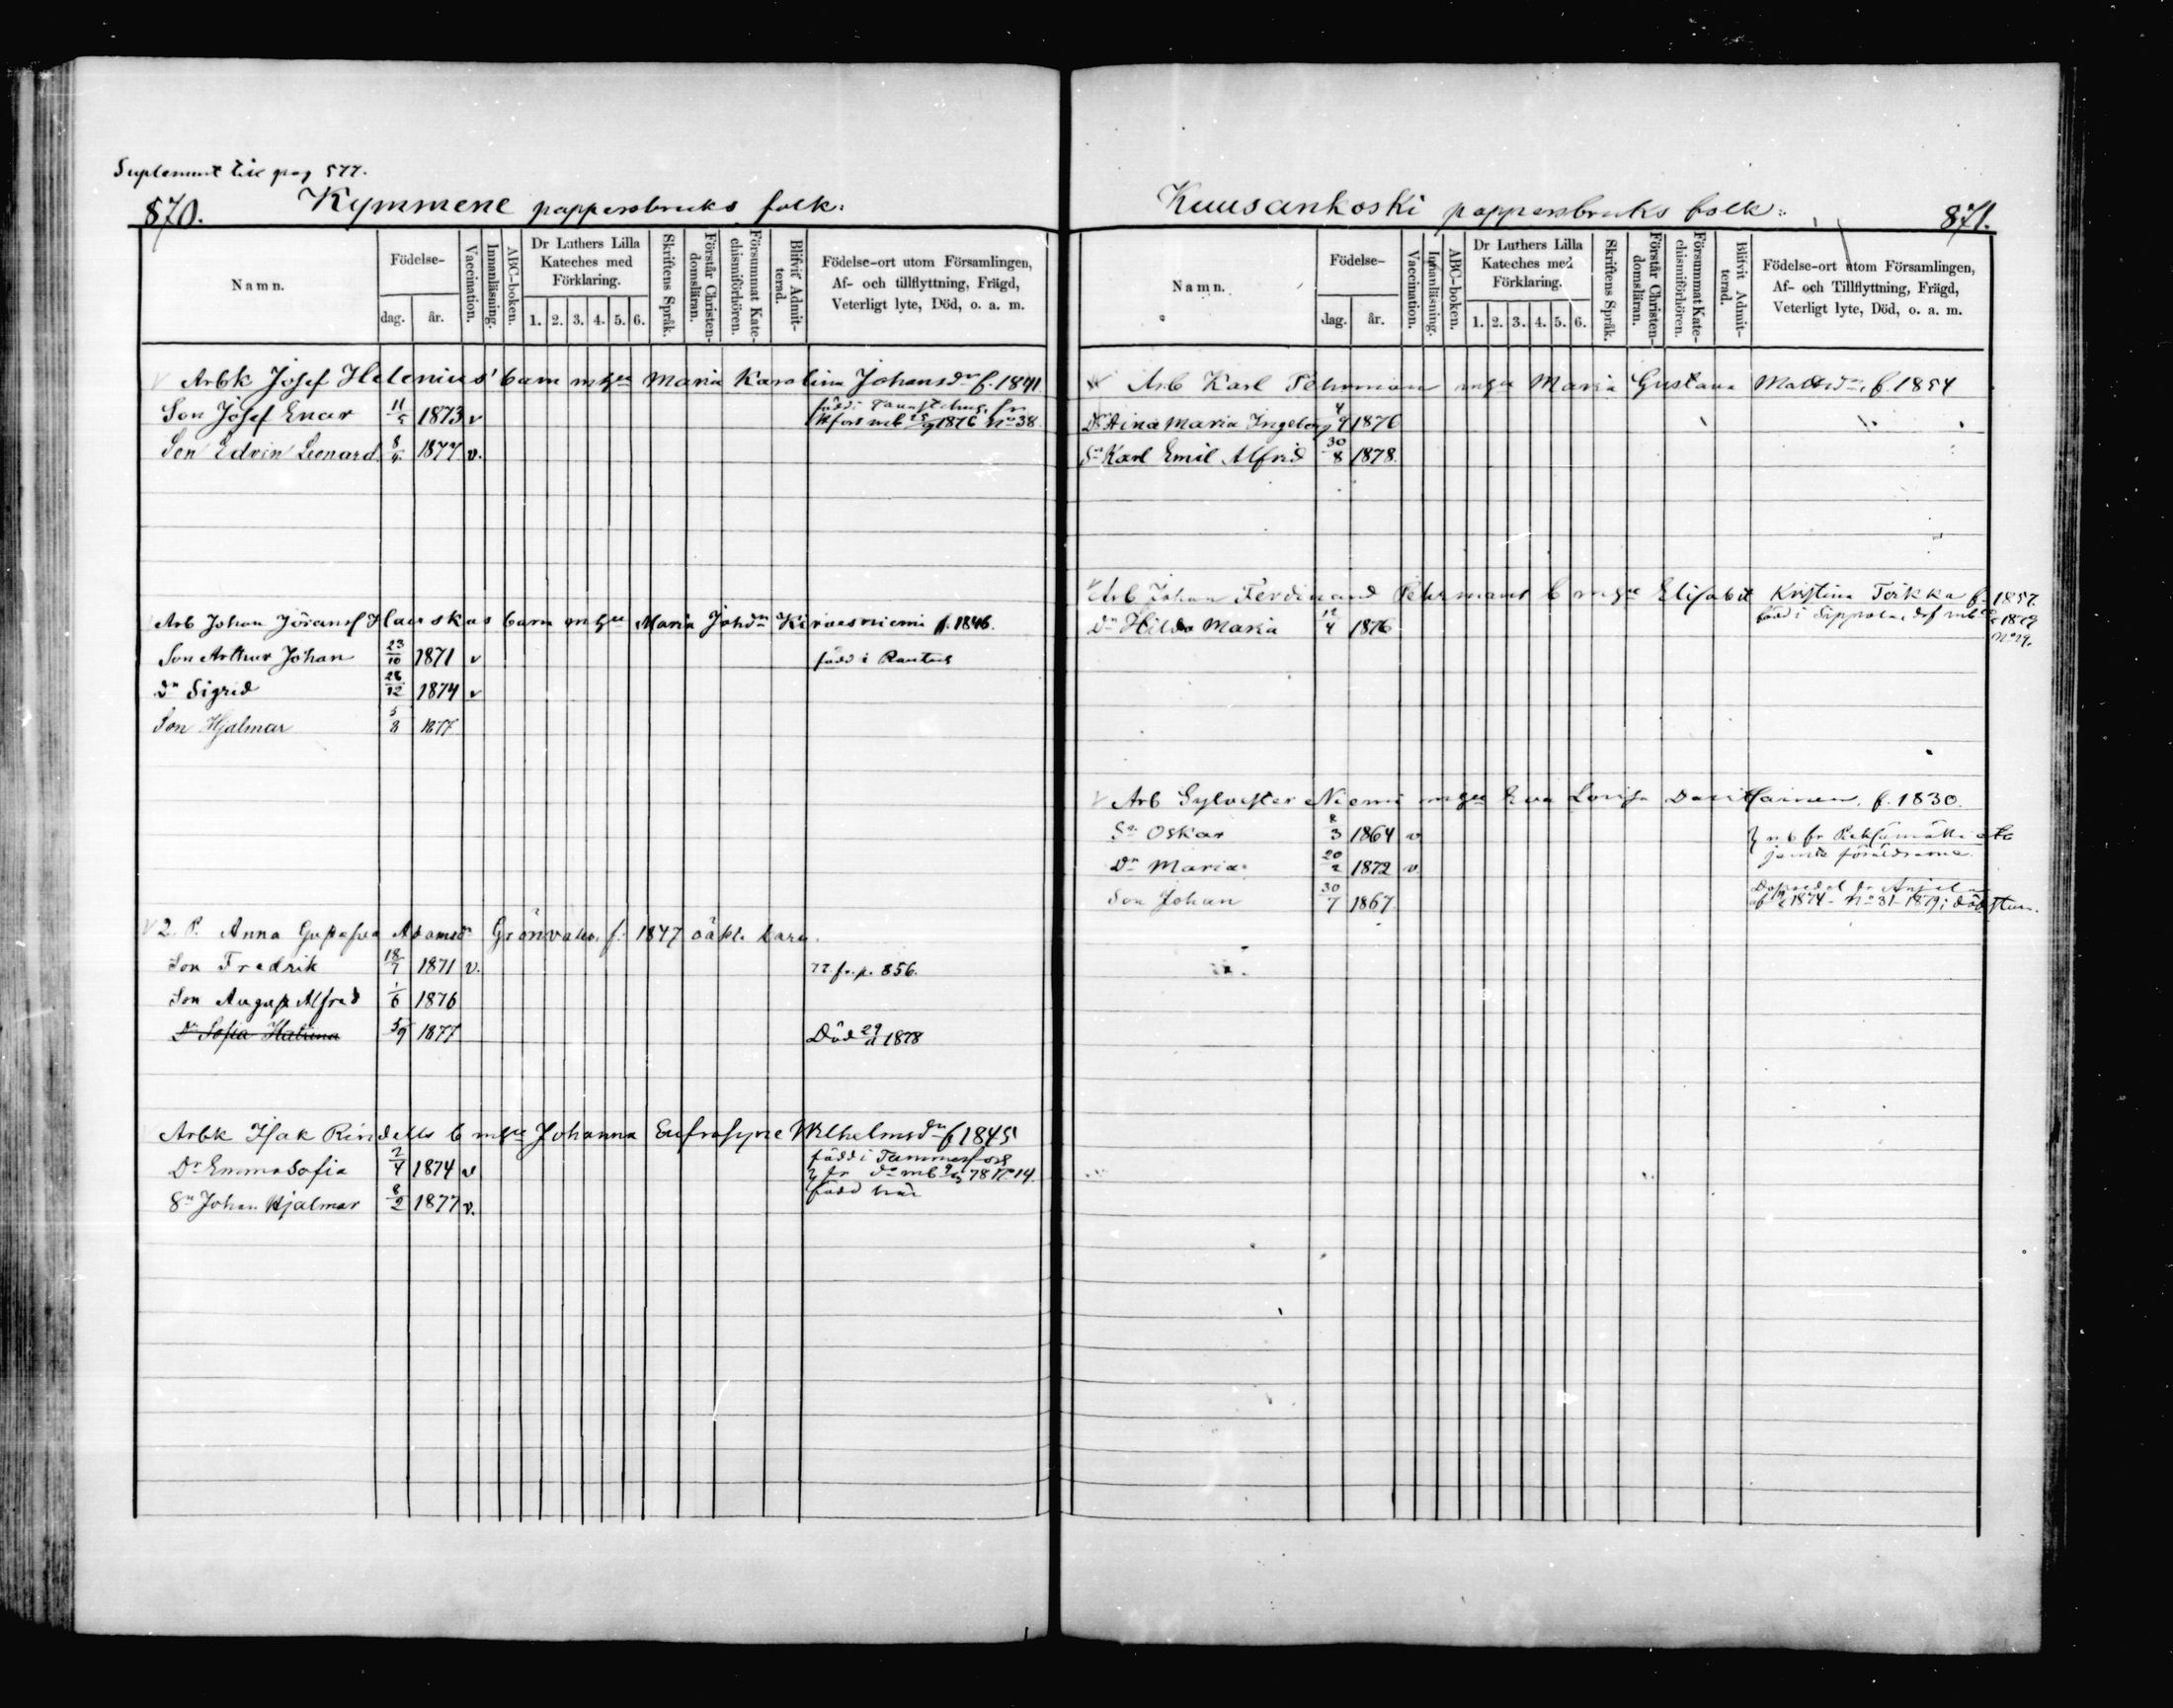 Suplement till pag 577.
870. Kymmene pappersbruks folk:
Namn.
Födelse-
dag.
år.
Vaccination.
Innanläsning.
ABC-boken.
Dr Luthers Lilla
Kateches med
Förklaring.
1. 2. 3. 4. 5. 6.
Skriftens Språk.
Förstår Christen-
domsläran.
Försummat Kate-
chismiförhören.
Blifvit Admit-
terad.
Födelse-ort utom Församlingen,
Af- och tillflyttning, Frägd,
Veterligt lyte, Död, o. a. m.
Arbk Josef Helenius' barn m hu Maria Karolina Johansdr f. 1841.
Son Josef Enar 11/5 1873 v född i Tavastehus, fr
Hfors mb 25/9 1876 No 38.
Son Edvin Leonard 8/4 1877 v.
Arb Johan Jöranss Hlavskas barn m hu Maria Johdr Kirvesniemi f. 1846.
Son Arthur Johan 23/10 1871 v född i Rautus
Dr Sigrid 26/12 1874 v
Son Hjalmar 5/8 1877
2. P. Anna Gustava Adamsdr Grönvalls. f. 1847 oäkt. barn.
Son Fredrik 18/7 1871 v. fr. p. 856.
Son August Alfred 1/6 1876
Dr Sofia Halina 5/9 1877 Död 29/11 1878
Arbk Isak Rindells b m hu Johanna Eufrosyne Wilhelmsdr f 1845
Dr Emma Sofia 2/4 1874 v född i Tammerfors
fr do mb 9/9 78 No 14.
Sn Johan Hjalmar 8/2 1877 v. född här
Kuusankoski pappersbruks folk: 871.
Namn.
Födelse-
dag.
år.
Vaccination.
Innanläsning.
ABC-boken.
Dr Luthers Lilla
Kateches med
Förklaring.
1. 2. 3. 4. 5. 6.
Skriftens Språk.
Förstår Christen-
domsläran.
Försummat Kate-
chismiförhören.
Blifvit Admit-
terad.
Födelse-ort utom Församlingen,
Af- och Tillflyttning, Frägd,
Veterligt lyte, Död, o. a. m.
Arb Karl Pehrman m hu Maria Gustava Mattsdr, f. 1854
Dr Aina Maria Ingeborg 4/9 1876
Sn Karl Emil Alfrid 30/8 1878.
Arb Johan Ferdinand Pehrmans b m hu Elisabet Kristina Toikka f. 1857.
Dr Hilda Maria 12/4 1876 född i Sippola, drf mb 1879
No 29.
Arb Sylvester Niemi m hu Eva Lovisa Davitsainen, f. 1830.
Sn Oskar 8/3 1864 v mb fr
Dr Maria 20/2 1872 v jemte föräldrarne.
Son Johan 30/7 1867 fr Anjala
1874 - No 31 - 1879;